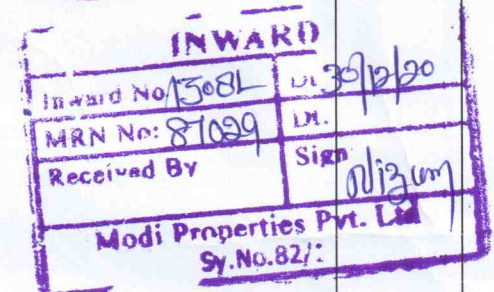 INWARD
Inward No 15082 Dt. 30/12/20
MRN No: 87029 Dt.
Received By Sign Nizum
Modi Properties Pvt. Ltd
Sy.No.82/: